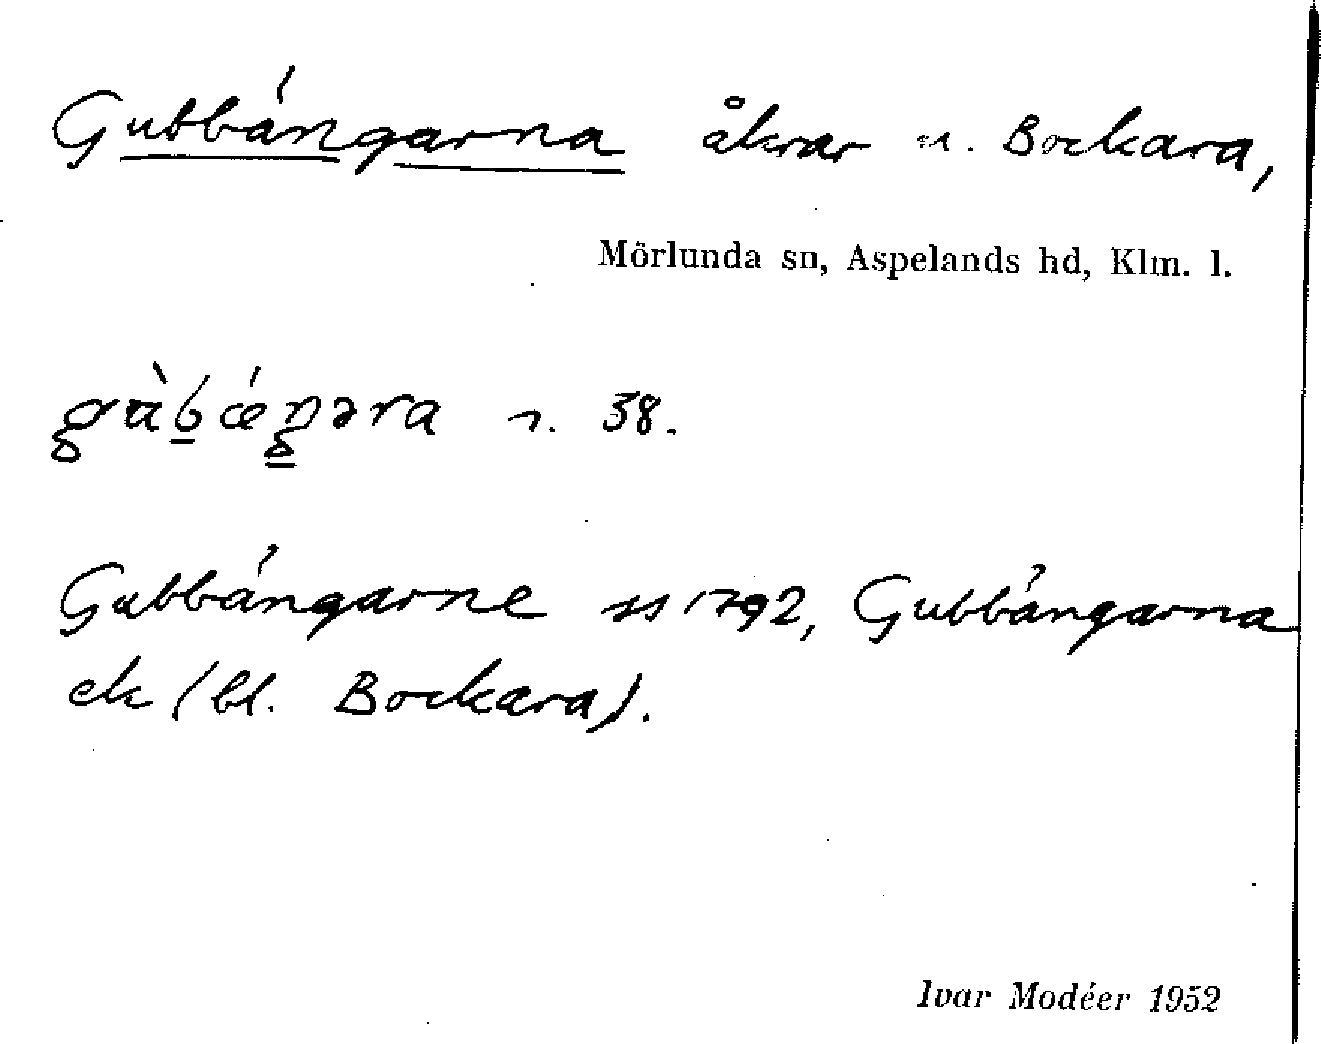 Gubbängarna åkrar u. Bockara,
Mörlunda sn, Aspelands hd, Klm. l.
38.
Gubbängarne ss 1792, Gubbängarna
ek (bl. Bockara).
Ivar Modéer 1952